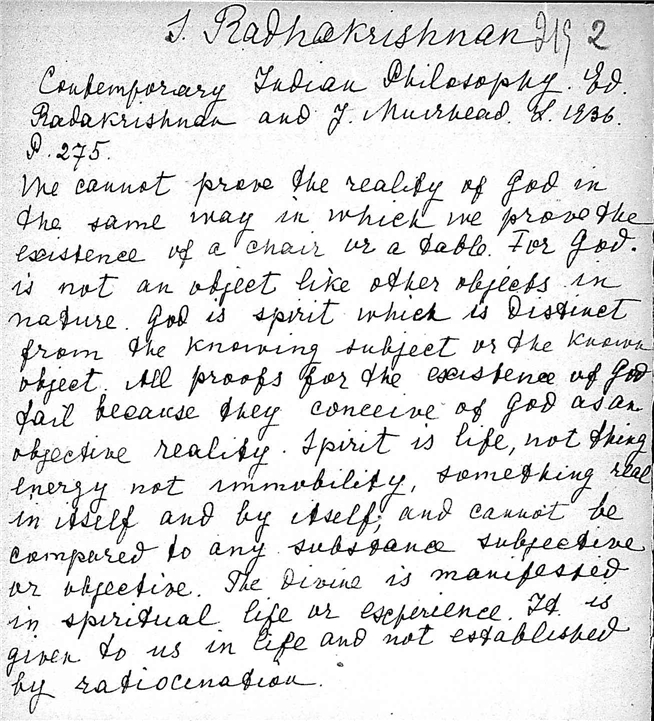 S. Radhakrishnan 2
Contemporary Indian Philosophy. Ed.
Radakrishnan and J. Muirhead. L. 1936.
P. 275.
We cannot prove the reality of God in
the same way in which we prove the
existence of a chair or a table. For God.
is not an object like other objects in
nature. God is spirit which is distinct
from the knowing subject or the known
object. All proofs for the existence of God
fail because they conceive of God as an
objective reality. Spirit is life, not thing
energy not immobility, something real
in itself and by itself, and cannot be
compared to any substance subjective
or objective. The Divine is manifested
in spiritual life or experience. It is
given to us in life and not established
by ratiocination.